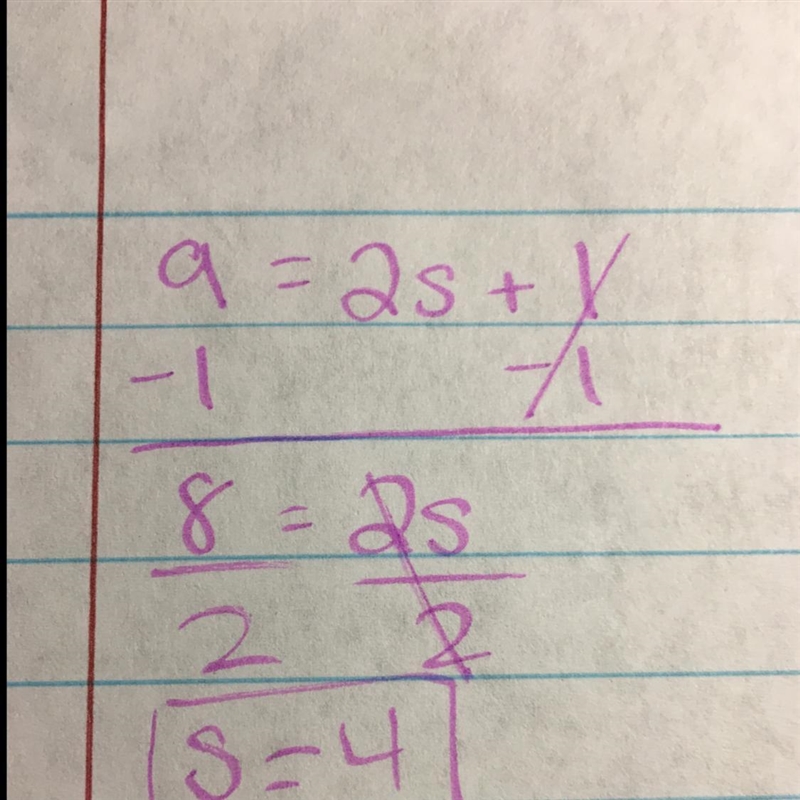 9 = 2s + 1
-1 -1
8 = 2s
2 2
s = 4